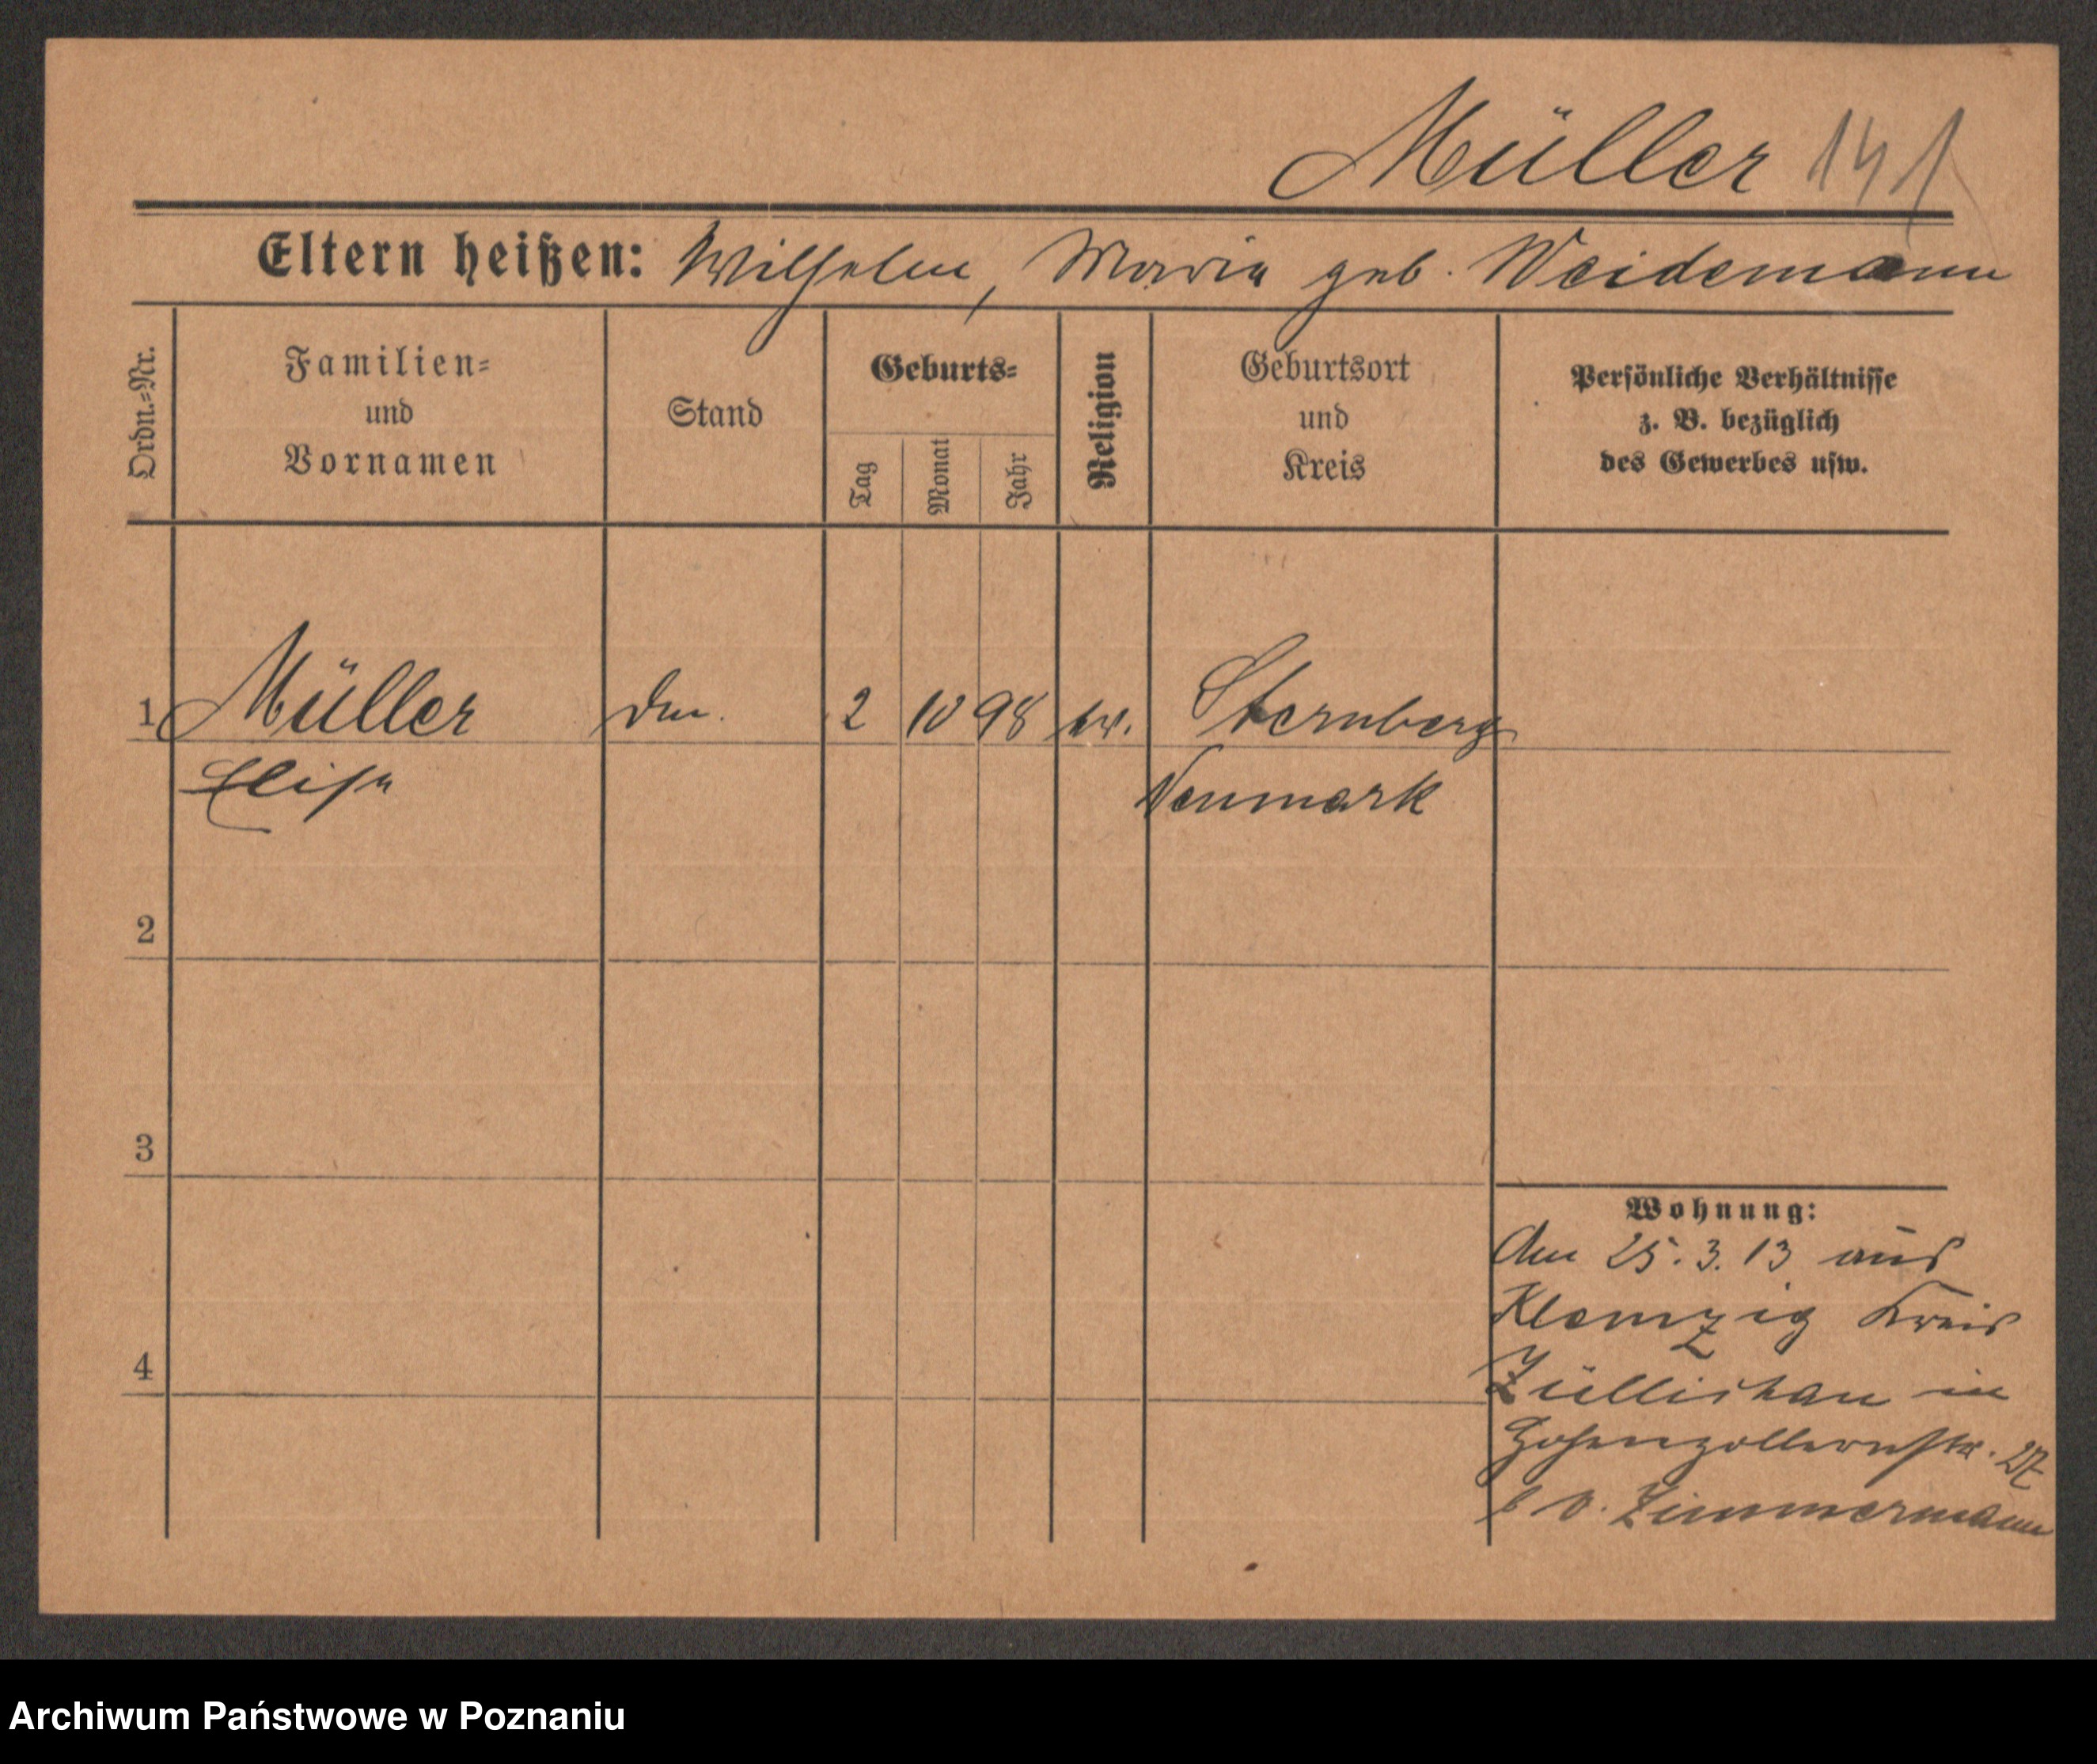 Müller 141
Eltern heißen: Wilhelm, Marie geb. Weidemann
Ordn.=Nr.
Familien=
und
Vornamen
Stand
Geburts=
Tag
Monat
Jahr
Religion
Geburtsort
und
Kreis
Persönliche Verhältnisse
z. B. bezüglich
des Gewerbes usw.
1 Müller 2 10 98 Sternberg
Elise Neumark
2
3
4
Wohnung:
Am 25.3.13 aus
Klemzig Kreis
Züllichau in
Hohenzollernstr. 27
b v. Zimmermann
Archiwum Państwowe w Poznaniu